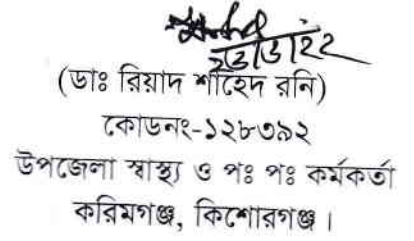 (ডাঃ রিয়াদ শাহেদ রনি)
কোডনং-১২৮৩৯২
উপজেলা স্বাস্থ্য ও পঃ পঃ কর্মকর্তা
করিমগঞ্জ, কিশোরগঞ্জ।